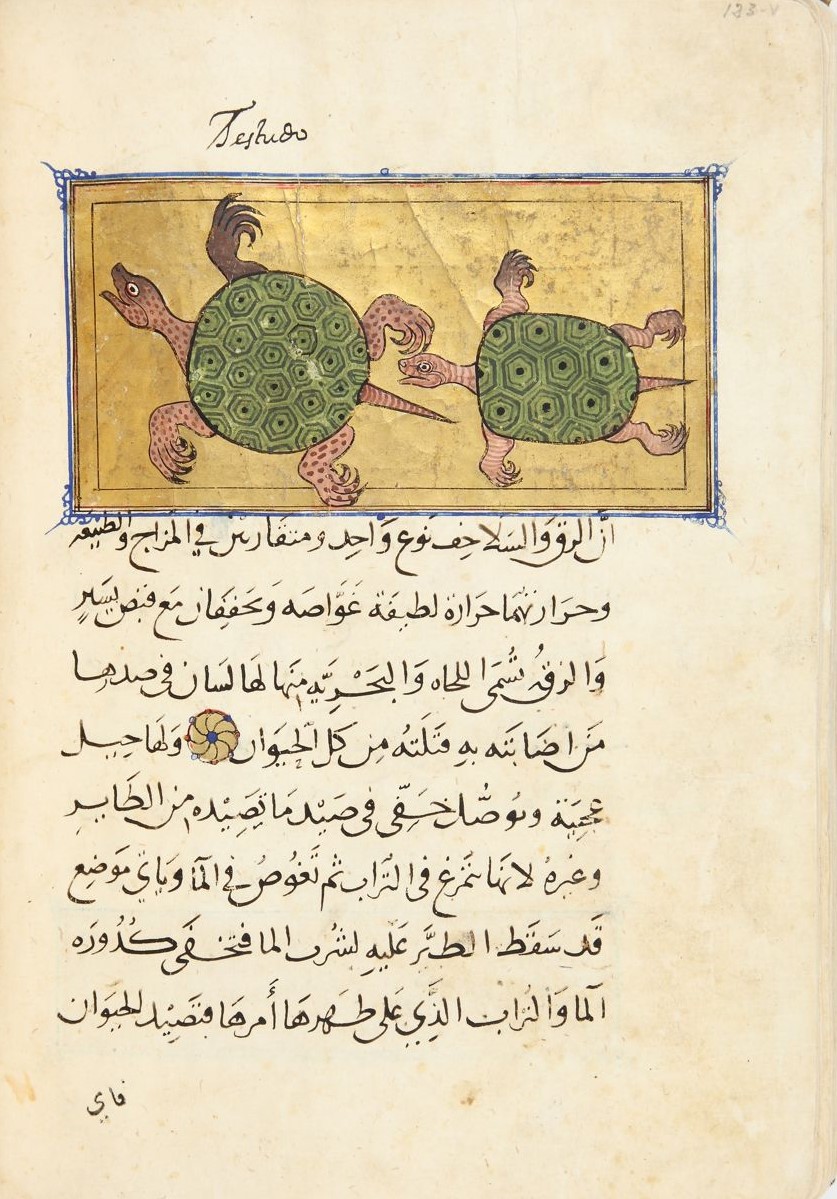 133-v
Testudo
ان الرق والسلاحف نوع واحد ومتقاربين في المزاج والطبيعه
وحرارتهما حرارة لطيفة غواصه وتجففان مع قبض يسير
والرقه تسمى اللجاه والبحريه منها لها لسان في صدرها
من اصابته به قتلته من كل الحيوان ولها حيل
عجيبة وتوصل خفي في صيد ما تصيده من الطاير
وغيره لانها تتمرغ في التراب ثم تغوص في الما وياتي موضع
قد سقط الطير عليه لشرب الما فتخفى كدوره
الما والتراب الذي على ظهرها أمرها فتصيد الحيوان